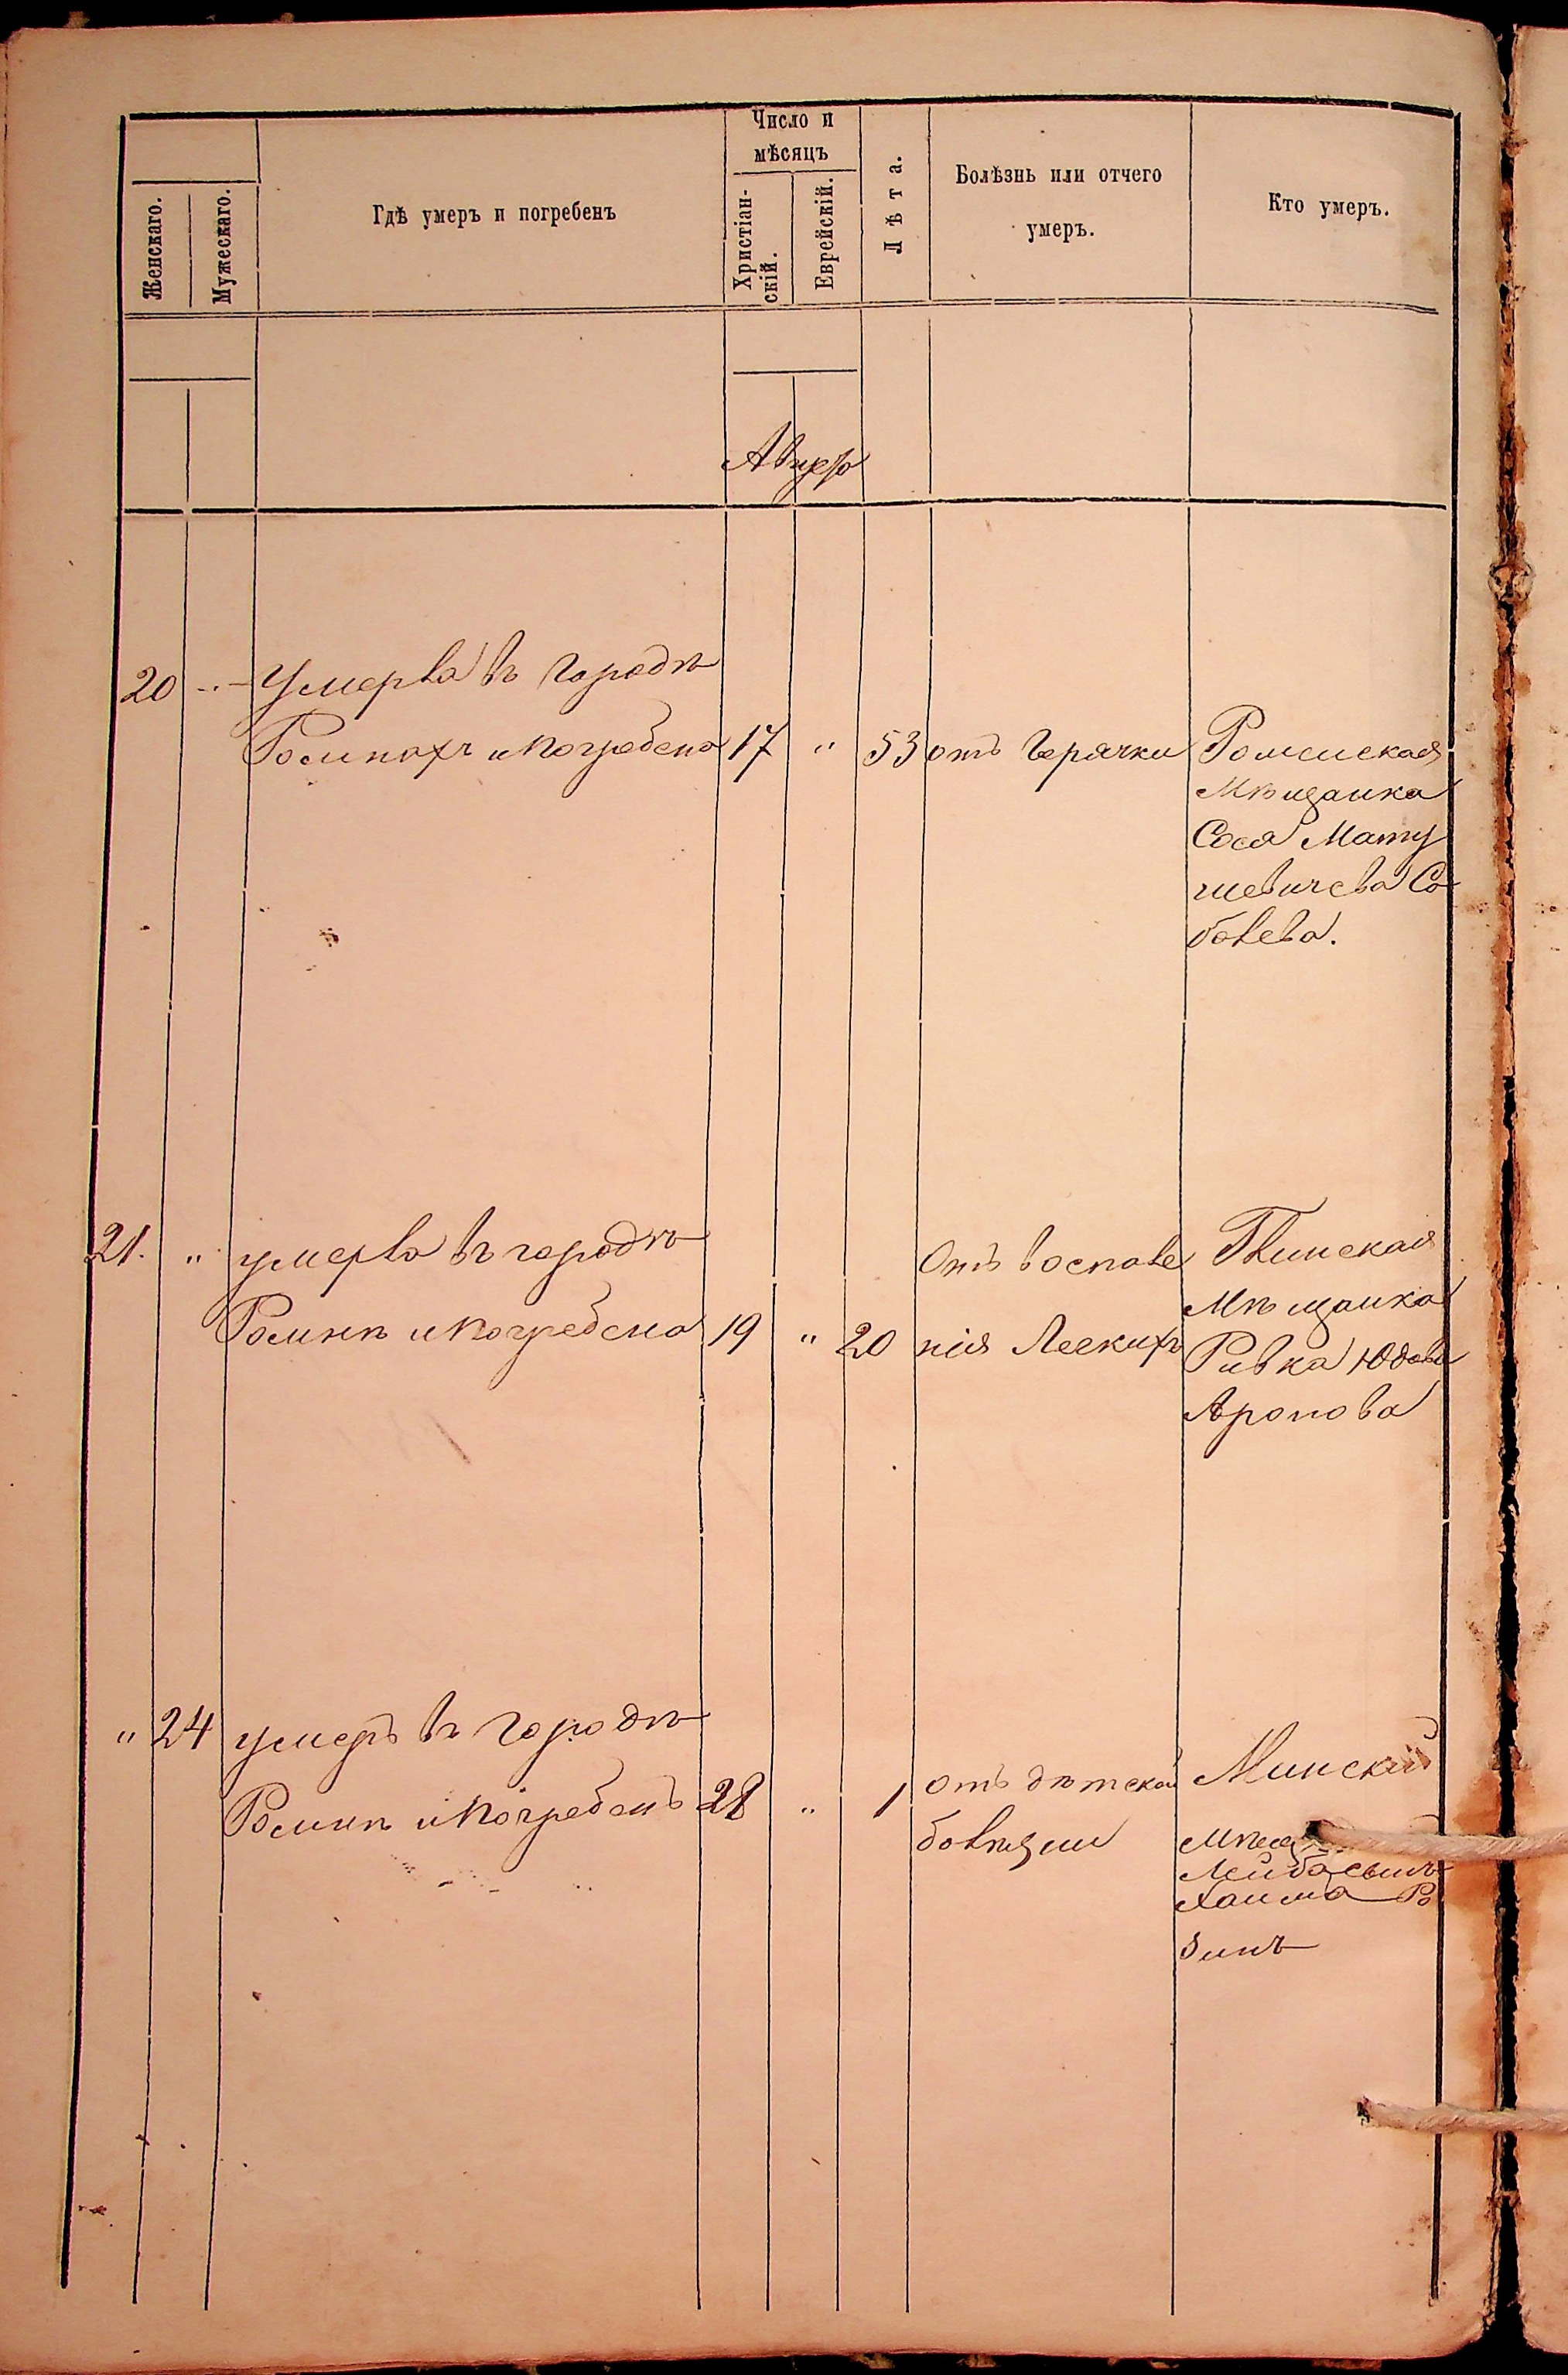 Женскаго.
Мужескаго.
Гдѣ умеръ и погребенъ
Число и
мѣсяцъ
Христіан-
скій.
Еврейскій.
Лѣта.
Болѣзнь или отчего
умеръ.
Кто умеръ.
20 Умерла въ городѣ
Ромнахъ и погребена 17 " 53 отъ горячки Роменская
мѣщанка
Сося Мату
шевичева Со
болева.
21. " умерла въ городѣ
Ромнѣ и погребена 19 " 20
Отъ воспале
нія Легкихъ
мѣщанка
Ривка Юдова
Аронова
" 24 умеръ въ городѣ
Ромнѣ и погребенъ 28 " 1
отъ дѣтской
болѣзни
Минскій
Лейба сынъ
Хаима Ро
зинъ